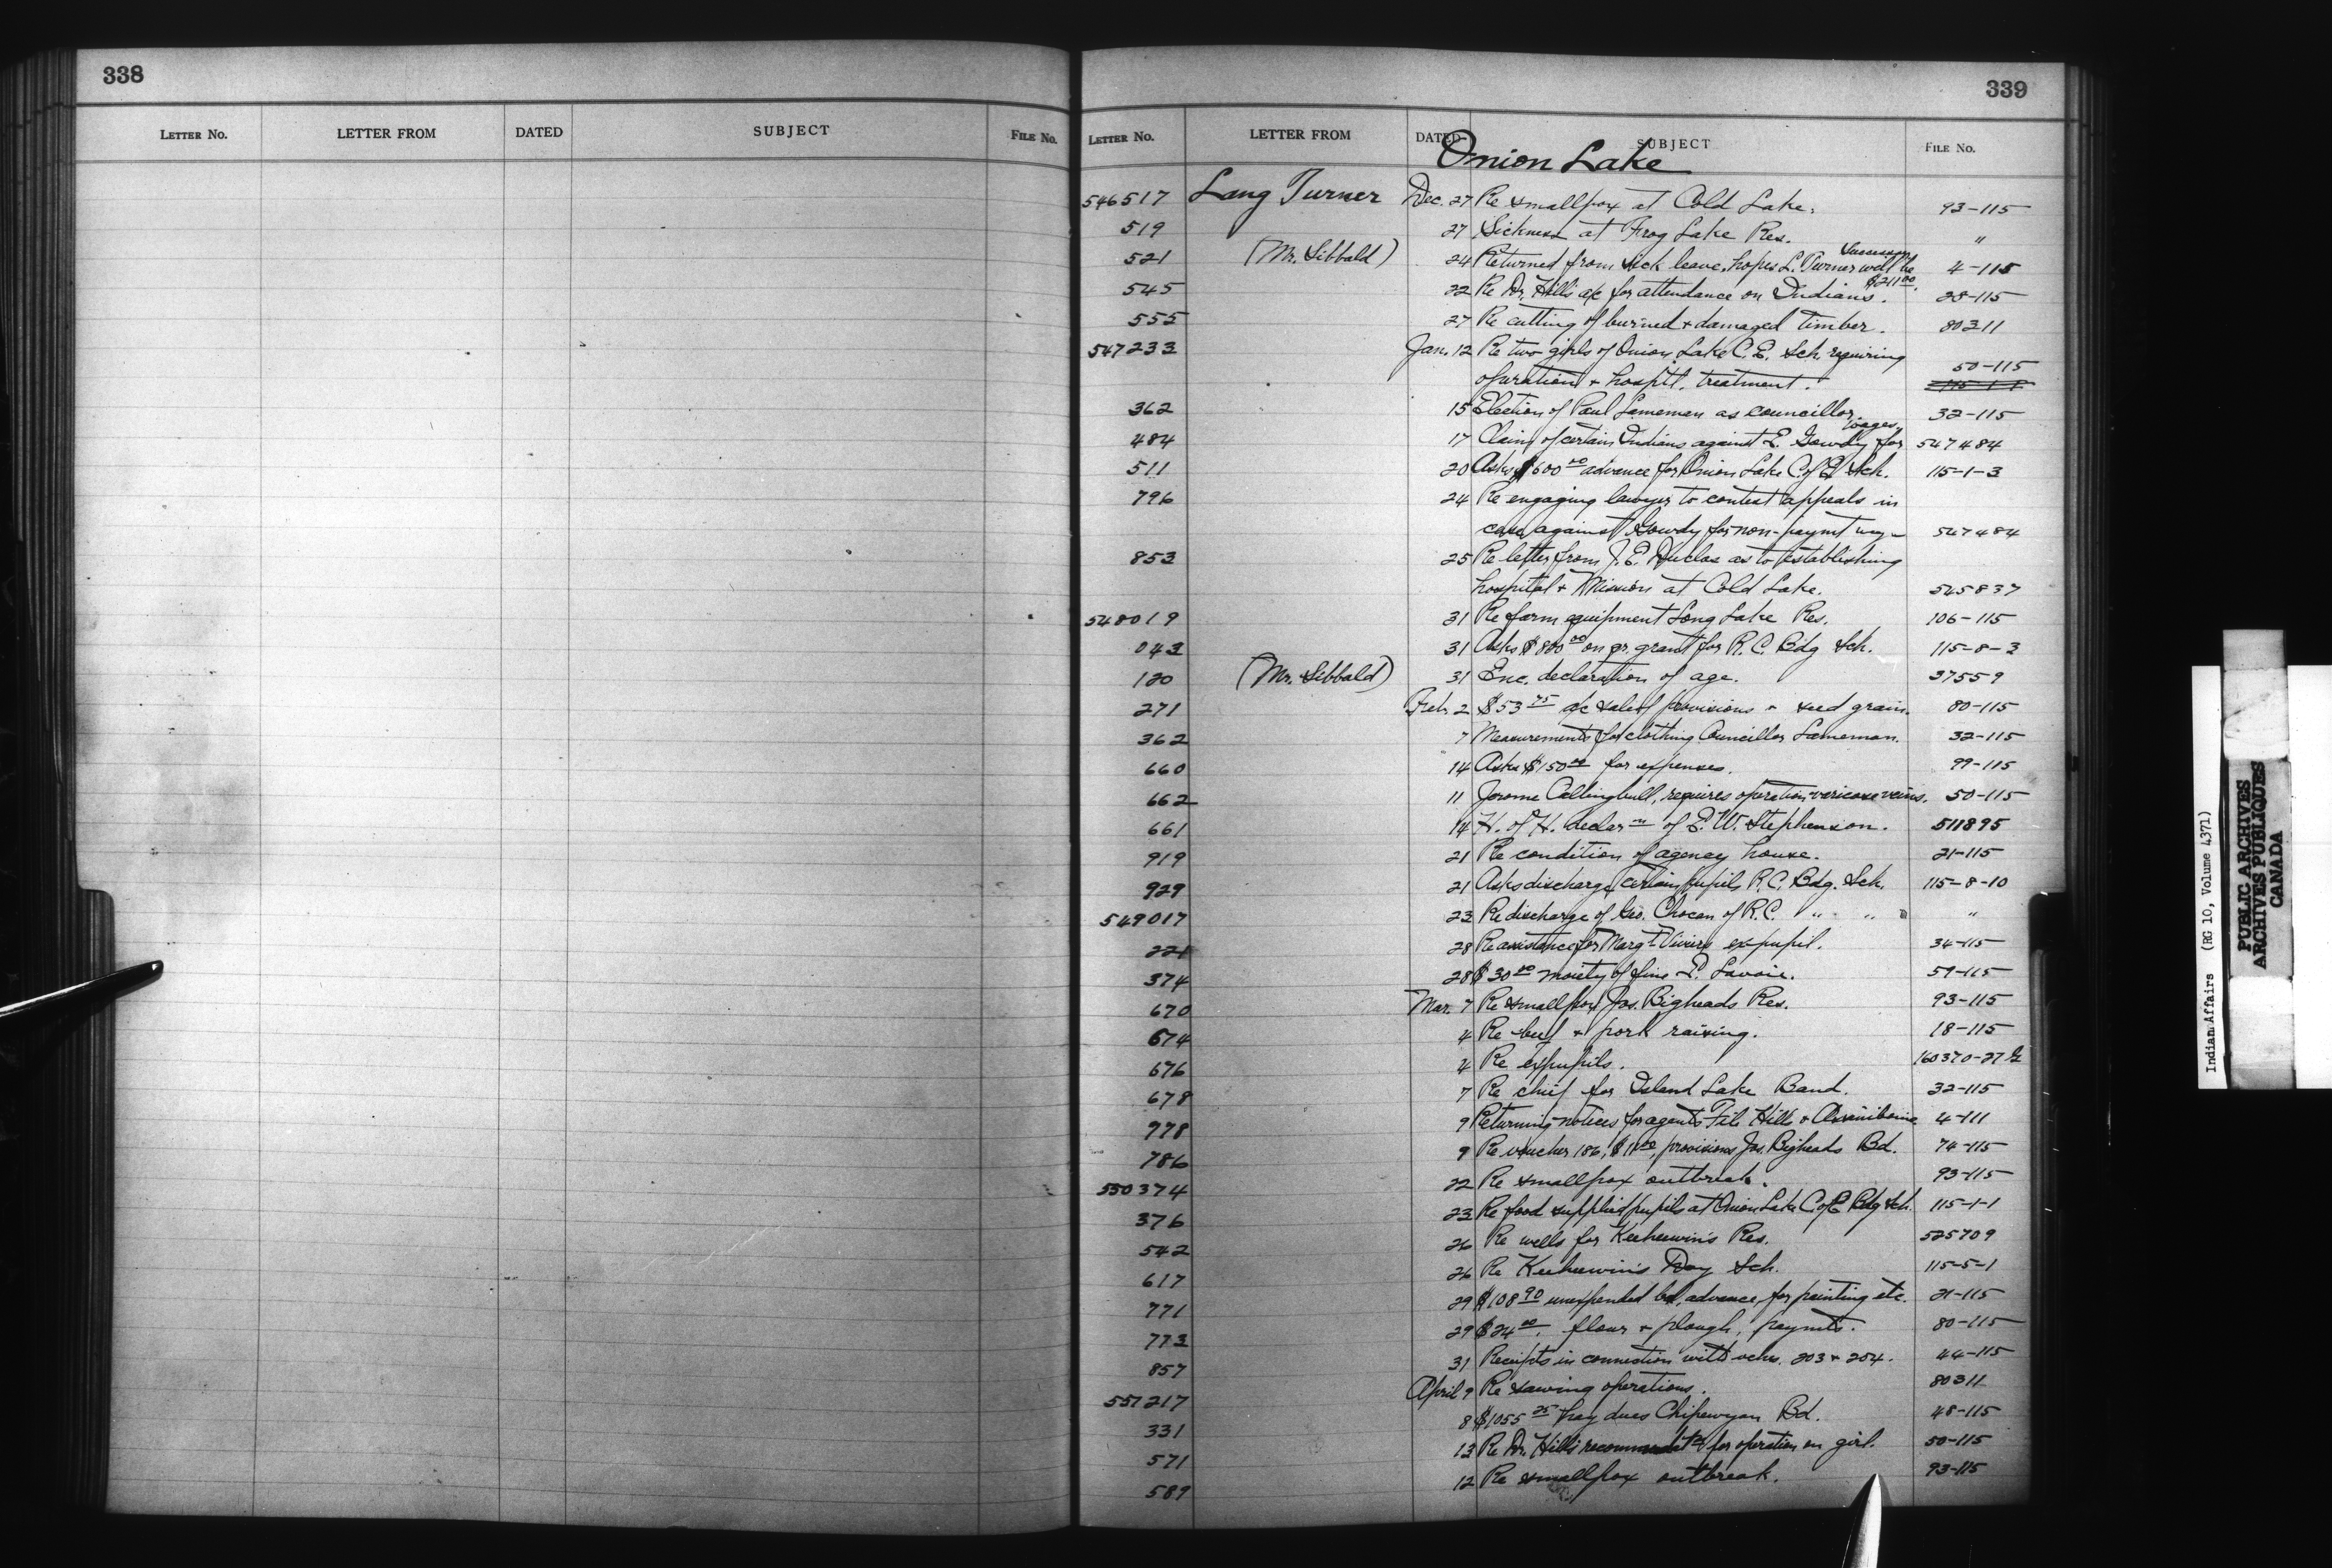 338
LETTER NO. LETTER FROM DATED SUBJECT FILE No.
339
LETTER NO. LETTER FROM DATED SUBJECT FILE No.
Onion Lake
546517 Lang Turner Dec. 27 Re smallpox at Cold Lake. 93-115
519 27 Sickness at Frog Lake Res. "
521 (Mr. Sibbald) 24 Returned from sick leave, hopes L. Turner will be successor. 4-115
545 22 Re Dr. Hill's a/c for attendance on Indians. $211.00. 28-115
555 27 Re cutting of burned + damaged timber. 80311
547233 Jan. 12 Re two girls of Onion Lake C.E. Sch. requiring
operation + hospitl. treatment. 50-115
362 15 Election of Paul Lameman as councillor. 32-115
484 17 Claim of certain Indians against E. Gowdy for wages. 547484
511 20 Asks $600 00 advance for Onion Lake C. of E. Sch. 115-1-3
796 24 Re engaging lawyer to contest appeals in
case against Gowdy for non-paymt wg- 547484
853 25 Re letter from J. E. Duclos as to establishing
hospital + Mission at Cold Lake. 545837
548019 31 Re farm equipment Long Lake Res. 106-115
043 31 Asks $800 00 on gr. grant for R. C. Bdg Sch. 115-8-3
120 (Mr. Sibbald) 31 Enc. declaration of age. 37559
271 Feb. 2 $53 75 a/c sale of provisions + seed grain. 80-115
362 7 Measurements for clothing Councillor Lameman. 32-115
660 14 Asks $150 00 for expenses. 99-115
662 11 Jerome Callingbull, requires operation varicose veins. 50-115
661 14 H. of H. declar n of E. W. Stephenson. 511895
919 21 Re condition of agency house. 21-115
929 21 Asks discharge certain pupils R.C. Bdg. Sch. 115-8-10
549017 23 Re discharge of Geo. Chocan of R.C. " " " "
221 28 Re assistance for Marg t Viviers ex-pupil. 34-115
374 28 $30 00 moiety of fine P. Lavoie. 59-115
670 Mar. 7 Re smallpox Jos. Bigheads Res. 93-115
674 4 Re beef + pork raising. 18-115
676 4 Re expupils. 160370-27 G
678 7 Re chief for Island Lake Band. 32-115
778 9 Returning notices for agents File Hills & Assiniboine 4-111
786 9 Re voucher 186, $11 00, provisions Jos. Bigheads Bd. 74-115
550374 22 Re smallpox outbreak. 93-115
376 23 Re food supplied pupils at Onion Lake C of E Bdg Sch. 115-1-1
542 26 Re wells for Keeheewin's Res. 525709
617 26 Re Keeheewin's Day Sch. 115-5-1
771 29 $108 90 unexpended bal. advance for painting etc. 21-115
773 29 $24 00. flour + plough, paymts. 80-115
857 31 Receipts in connection with vchs. 203 + 204. 44-115
551217 April 9 Re sawing operations. 80311
331 8 $1055 25 hay dues Chipewyan Bd. 48-115
571 13 Re Dr. Hill's recommendt n for operation on girl. 50-115
589 12 Re smallpox outbreak. 93-115
Indian Affairs (RG 10, Volume 4371)
PUBLIC ARCHIVES
ARCHIVES PUBLIQUES
CANADA